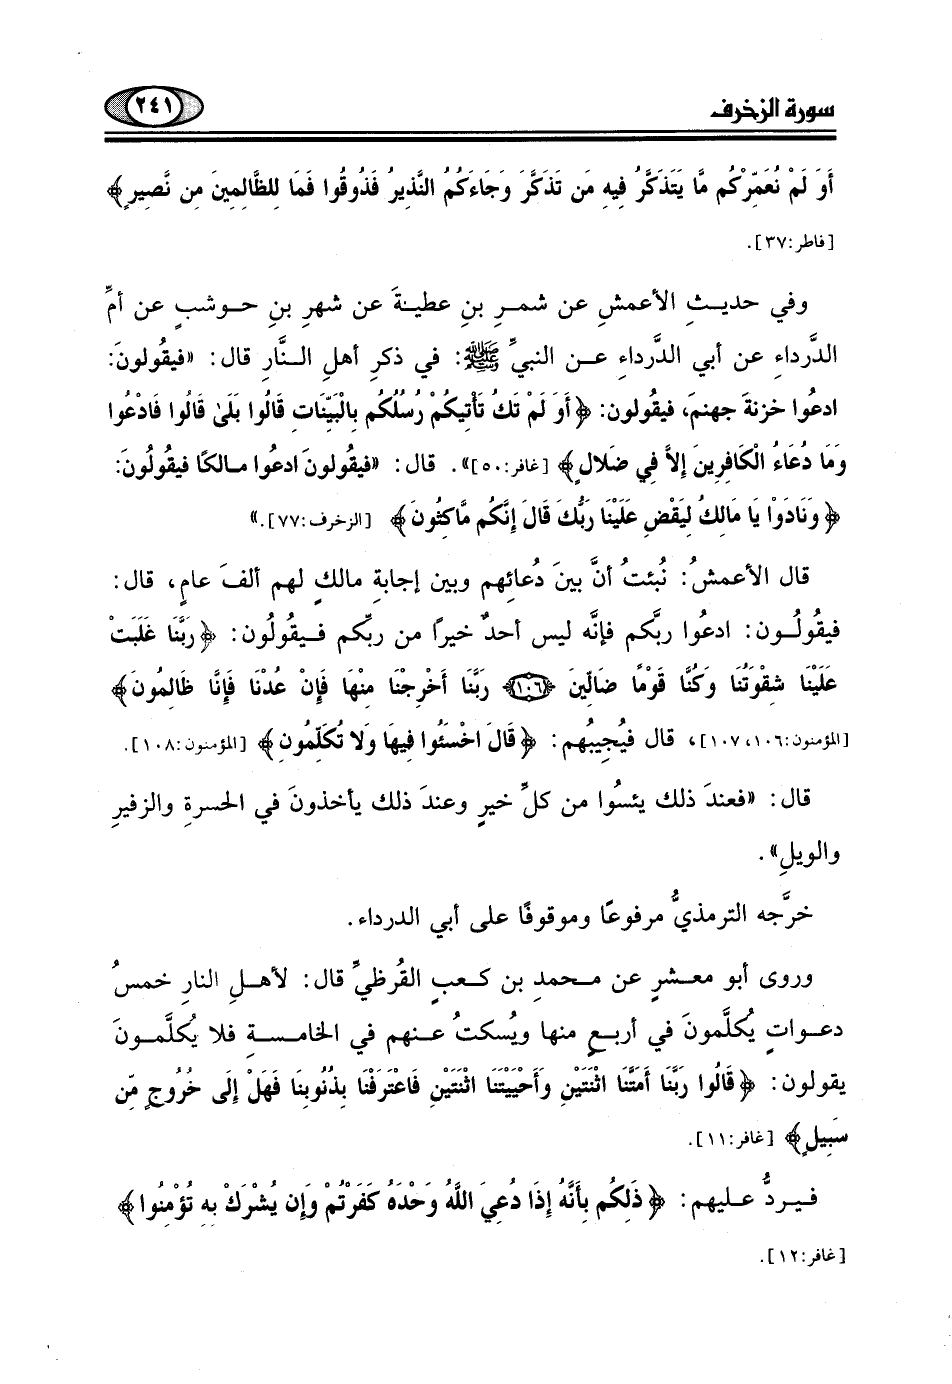 سورة الزخرف ٢٤١
أَوَ لَمْ نُعَمِّرْكُم مَّا يَتَذَكَّرُ فِيهِ مَن تَذَكَّرَ وَجَاءَكُمُ النَّذِيرُ فَذُوقُوا فَمَا لِلظَّالِمِينَ مِن نَّصِيرٍ﴾
[فاطر:٣٧].
وفي حديثِ الأعمشِ عن شمرِ بنِ عطيةَ عن شهرِ بنِ حوشبٍ عن أمِّ
الدَّرداءِ عن أبي الدَّرداءِ عن النبيِّ ﷺ: في ذكرِ أهلِ النَّارِ قال: «فيقولونَ:
ادعُوا خزنةَ جهنمَ، فيقولون: ﴿أَوَ لَمْ تَكُ تَأْتِيكُمْ رُسُلُكُم بِالْبَيِّنَاتِ قَالُوا بَلَىٰ قَالُوا فَادْعُوا
وَمَا دُعَاءُ الْكَافِرِينَ إِلاَّ فِي ضَلالٍ﴾ [غافر:٥٠]». قال: «فيقولونَ ادعُوا مالكًا فيقُولُونَ:
﴿وَنَادَوْا يَا مَالِكُ لِيَقْضِ عَلَيْنَا رَبُّكَ قَالَ إِنَّكُم مَّاكِثُونَ﴾ [الزخرف:٧٧].»
قال الأعمشُ: نُبئتُ أنَّ بينَ دُعائِهم وبين إجابةِ مالكٍ لهم ألفَ عامٍ، قال:
فيقُولُون: ادعُوا ربَّكم فإنَّه ليس أحدٌ خيرًا من ربِّكم فيقُولُون: ﴿رَبَّنَا غَلَبَتْ
عَلَيْنَا شِقْوَتُنَا وَكُنَّا قَوْمًا ضَالِّينَ ﴿١٠٦﴾ رَبَّنَا أَخْرِجْنَا مِنْهَا فَإِنْ عُدْنَا فَإِنَّا ظَالِمُونَ﴾
[المؤمنون:١٠٦، ١٠٧]، قال فيُجيبُهم: ﴿قَالَ اخْسَئُوا فِيهَا وَلا تُكَلِّمُونِ﴾ [المؤمنون:١٠٨].
قال: «فعندَ ذلك يئسُوا من كلِّ خيرٍ وعندَ ذلك يأخذونَ في الحسرةِ والزفيرِ
والويلِ».
خرَّجه الترمذيُّ مرفوعًا وموقوفًا على أبي الدرداء.
وروى أبو معشرٍ عن محمدِ بن كعبٍ القُرظيِّ قال: لأهلِ النارِ خمسُ
دعواتٍ يُكلَّمونَ في أربعٍ منها ويُسكتُ عنهم في الخامسةِ فلا يُكلَّمونَ
يقولون: ﴿قَالُوا رَبَّنَا أَمَتَّنَا اثْنَتَيْنِ وَأَحْيَيْتَنَا اثْنَتَيْنِ فَاعْتَرَفْنَا بِذُنُوبِنَا فَهَلْ إِلَى خُرُوجٍ مِّن
سَبِيلٍ﴾ [غافر:١١].
فيردُّ عليهم: ﴿ذَلِكُم بِأَنَّهُ إِذَا دُعِيَ اللَّهُ وَحْدَهُ كَفَرْتُمْ وَإِن يُشْرَكْ بِهِ تُؤْمِنُوا﴾
[غافر:١٢].